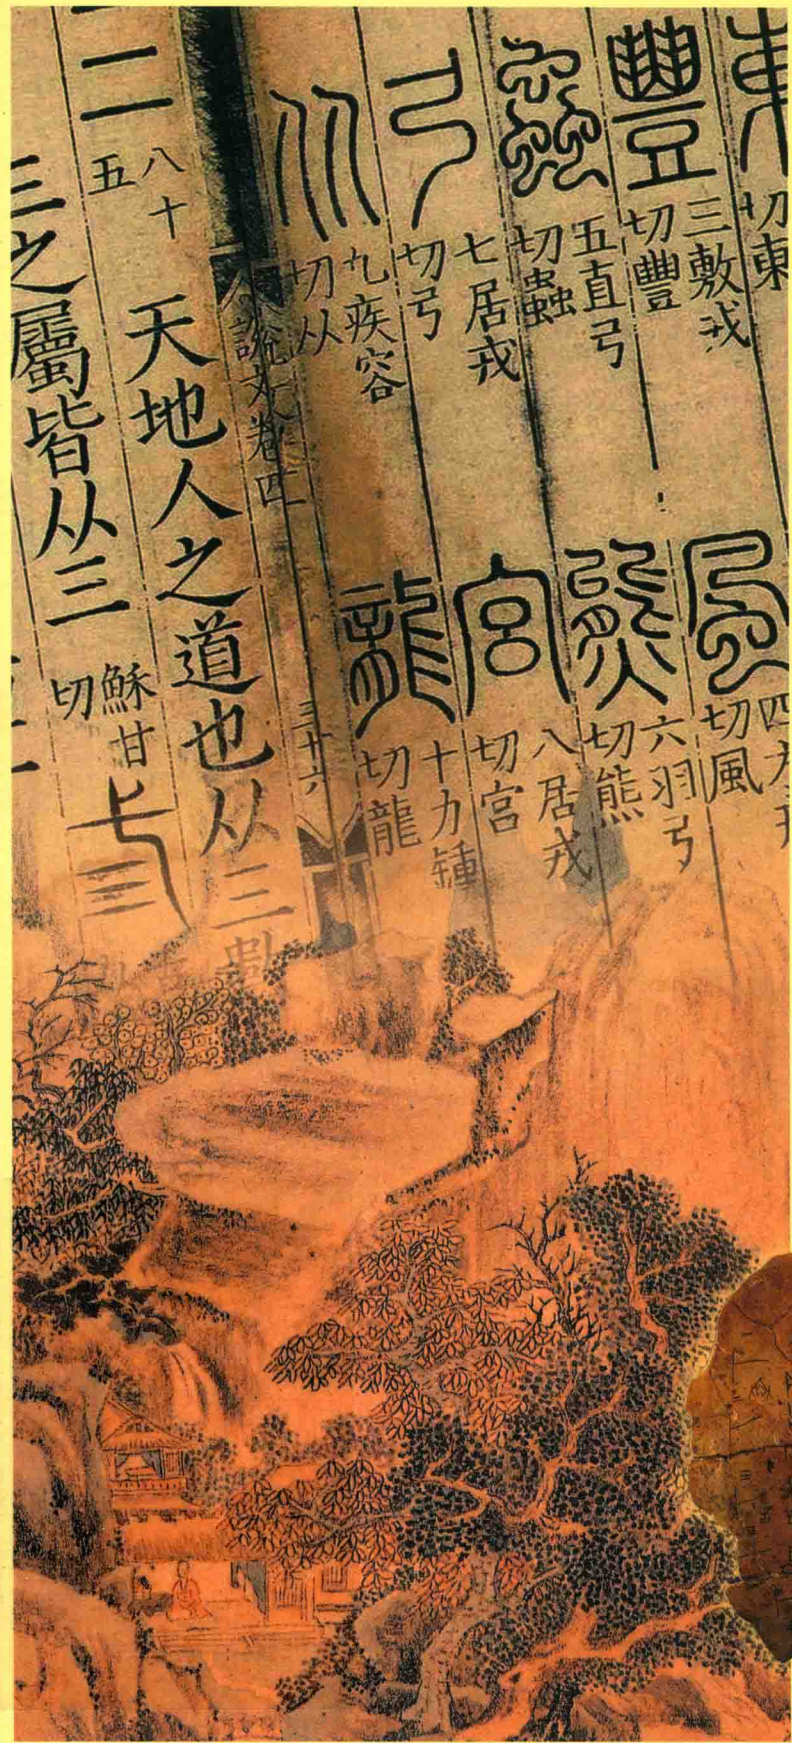 東 切東
豐 三敷戎切豐 風 四方戎切風
蟲 五直弓切蟲 熊 六羽弓切熊
弓 七居戎切弓 宮 八居戎切宮
从 九疾容切从 龍 十力鍾切龍
說文卷四 三十六
三 八十五 天地人之道也从三數
三之屬皆从三 穌甘切 弎